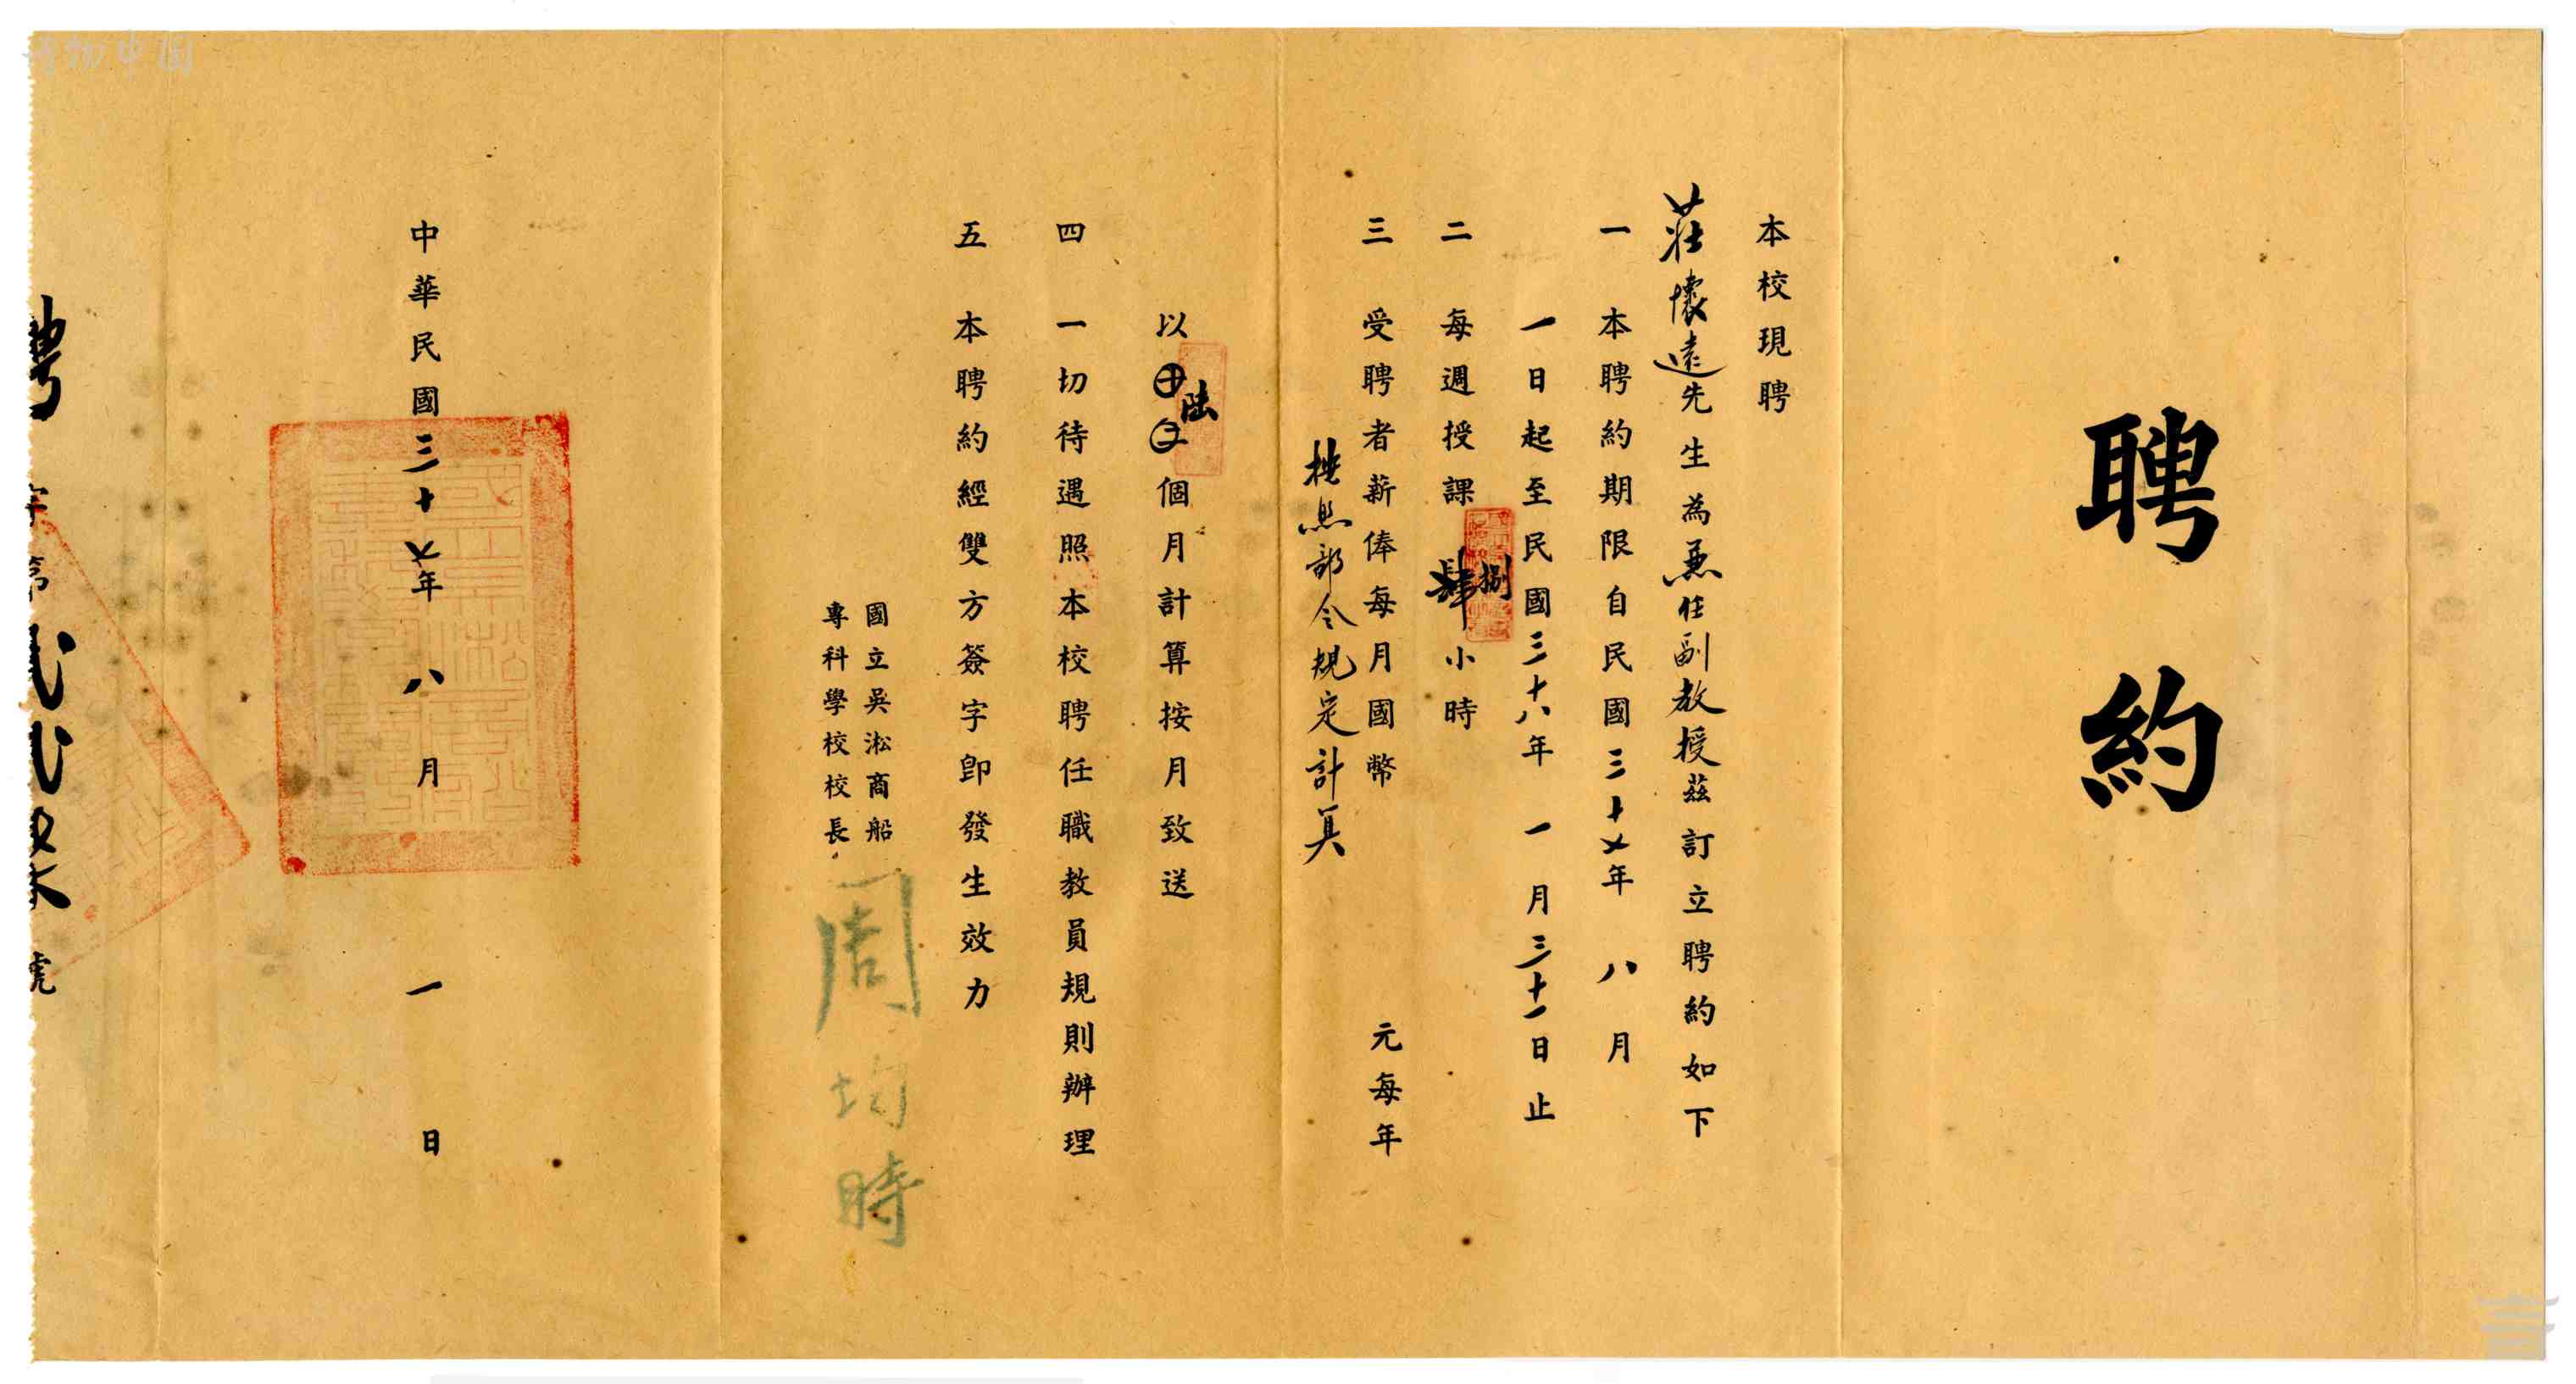 聘約
本校現聘
莊懷遠先生為兼任副教授茲訂立聘約如下
一 本聘約期限自民國三十七年 八 月
一日起至民國三十八年 一 月三十一日止
二 每週授課肆捌小時
三 受聘者薪俸每月國幣 元每年
按照部令規定計算
以十二陸個月計算按月致送
四 一切待遇照本校聘任職教員規則辦理
五 本聘約經雙方簽字卽發生效力
國立吳淞商船
專科學校校長
周均時
中華民國三十七年 八 月 一 日
聘字第 號